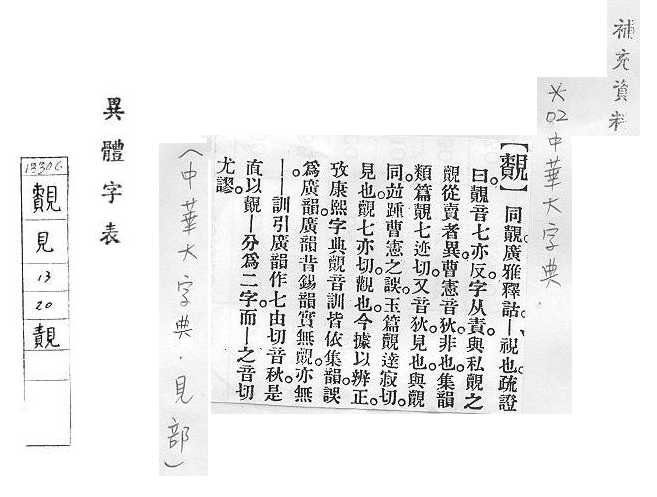 補充資料
※02中華大字典.
同。廣雅釋詁—視也。疏證
曰。音七亦反。字从責。與私覿之
覿從賣者異。曹憲音狄。非也。集韻
類篇七迹切。又音狄。見也。與覿
同。竝踵曹憲之誤。玉篇覿達寂切。
見也。七亦切。觀也。今據以辨正。
攷康熙字典音訓皆依集韻。誤
爲廣韻。廣韻昔錫韻實無。亦無
——訓引廣韻作七由切音秋。是
直以—分爲二字。而—之音切
尤謬。
(中華大字典.見部)
異體字表
見
13
20